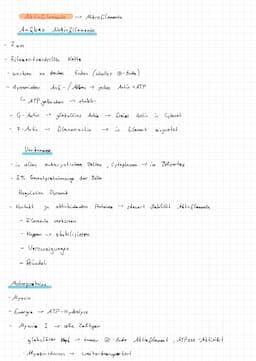 Aktinfilamente → Mikrofilamente
Aufbau Aktinfilamente
- 7 nm
- Filament
- wachsen an beiden Enden (schneller ⊕-Ende)
- dynamischer Auf-/Abbau → jedes Actin + ATP
↳ ATP gebunden → stabil
- G-Actin → globuläres Actin → freies Actin in Cytosol
- F-Actin → filamentös → in Filament
Vorkommen
- in allen eukaryotischen Zellen, Cytoplasma → in Zellcortex
- 5% Gesamtproteinmenge der Zelle
Regulation Dynamik
- Kontakt zu aktinbindenden Proteinen → steuert Stabilität Aktinfilamente
- Filamente
- Kappen → stabilisieren
- Verzweigungen
- Bündel
Motorproteine
- Myosin
- Energie → ATP-Hydrolyse
- Myosin I → alle Zelltypen
- globulärer Kopf → ⊕-Ende Aktinfilament, ATPase-Aktivität